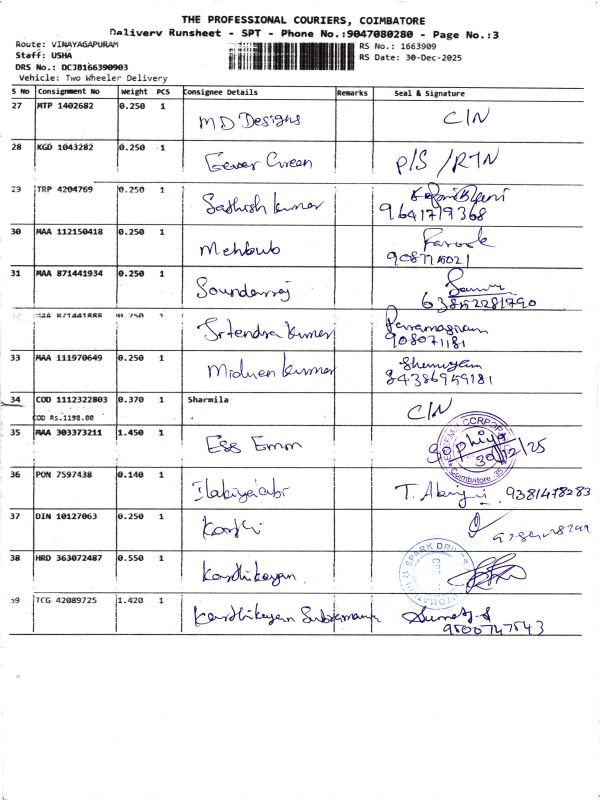 THE PROFESSIONAL COURIERS, COIMBATORE
Delivery Runsheet - SPT - Phone No.:9047080280 - Page No.:3
Route: VINAYAGAPURAM
Staff: USHA
DRS No.: DCJB166390903
Vehicle: Two Wheeler Delivery
RS No.: 1663909
RS Date: 30-Dec-2025
S No Consignment No Weight PCS Consignee Details Remarks Seal & Signature
27 MTP 1402682 0.250 1 MD Designs C/N
28 KGD 1043282 0.250 1 Green P/S /RTN
29 TRP 4204769 0.250 1 Sathish kumar
9641719368
30 MAA 112150418 0.250 1 Mehbub Farook
31 MAA 871441934 0.250 1 Soundarraj
MAA 871441888 0.250 1 Jitendra kumar
33 MAA 111970649 0.250 1 kumar
84386959181
34 COD 1112322803 0.370 1 Sharmila C/N
COD Rs.1198.00
35 MAA 303373211 1.450 1 Ess Emm Sophiya
30/12/25
CORPORAT
Coimbatore. 35
36 PON 7597438 0.140 1 T. 9381478283
37 DIN 10127063 0.250 1
38 HRD 363072487 0.550 1 Karthikeyan
SPARK DRIVE
39 TCG 42089725 1.420 1 Karthikeyan
9500747543